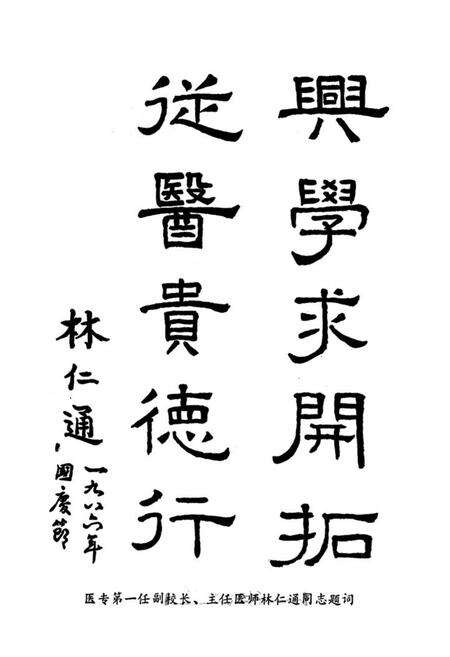 興學求開拓
從醫貴德行
林仁通
一九八六年
國慶節
医专第一任副校长、主任医师林仁通同志题词